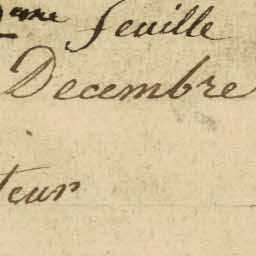 2eme feuille
Decembre
teur